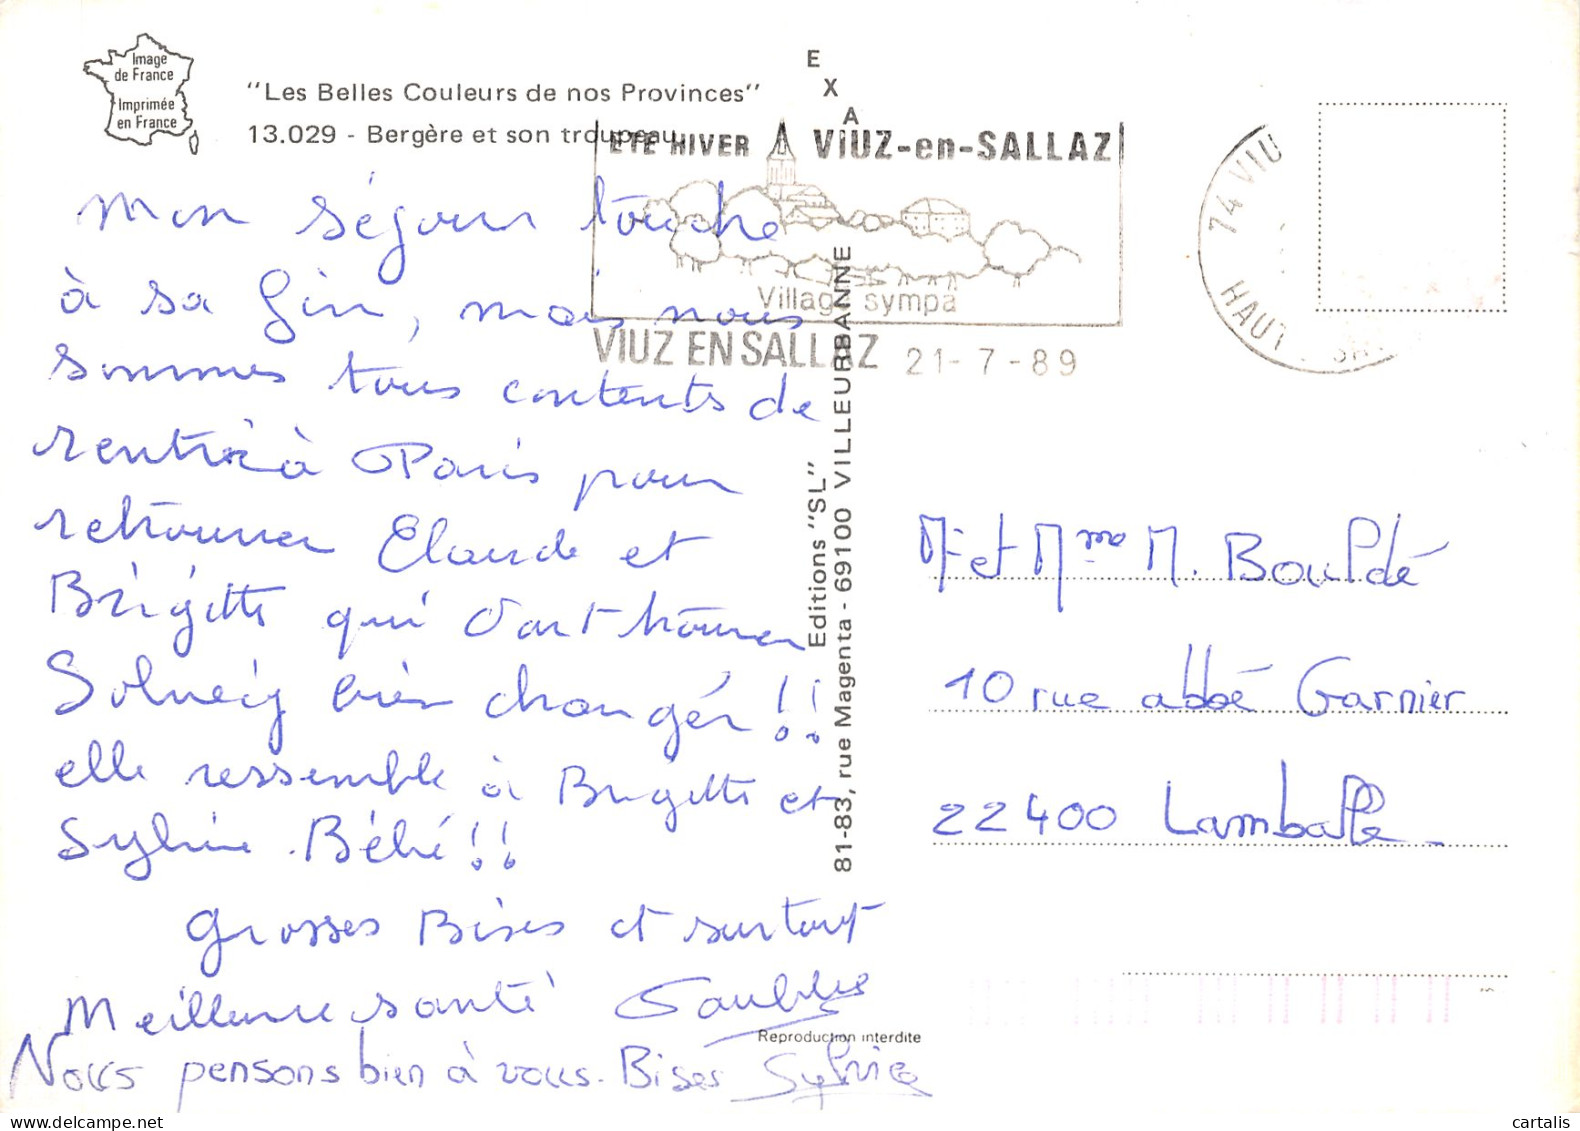 Image
de France
Imprimée
en France
"Les Belles Couleurs de nos Provinces"
13.029 - Bergère et son troupeau.
EXA
ETE HIVER VIUZ-en-SALLAZ
Village sympa
VIUZ EN SALLAZ 21-7-89
74 VIU
HAUT
Mon séjour touche
à sa fin, mais nous
sommes tous contents de
rentrer à Paris pour
retrouver Claude et
Brigitte qui vont trouver
bien changée!!
elle ressemble à Brigitte et
Sylvie Bébé!!
Grosses Bises et surtout
Meilleure santé
Nous pensons bien à vous. Bises Sylvie
Editions "SL"
81-83, rue Magenta - 69100 VILLEURBANNE
Reproduction interdite
Mr et Mme M. Bouldé
10 rue abbé Garnier
22400 Lamballe
cartalis
www.delcampe.net